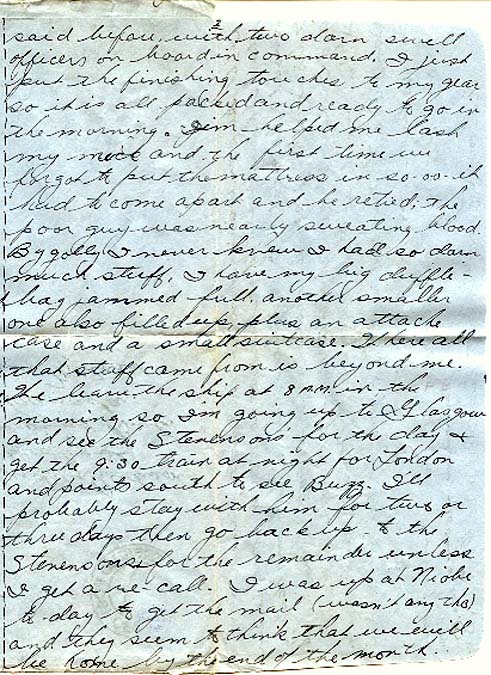 2
said before, with two darn swell
officers on board in command. I just
put the finishing touches to my gear
so it is all packed and ready to go in
the morning. Jim helped me lash
my mick and the first time we
forgot to put the mattress in so-oo-it
had to come apart and be retied; the
poor guy was nearly sweating blood.
By golly I never knew I had so darn
much stuff. I have my big duffle-
bag jammed full, another smaller
one also filled up, plus an attache
case and a small suitcase. Where all
that stuff came from is beyond me.
We leave the ship at 8 A.M. in the
morning so I'm going up to Glasgow
and see the Stevensons for the day &
get the 9:30 train at night for London
and points south to see Buzz. I'll
probably stay with him for two or
three days then go back up to the
Stevensons for the remainder unless
I get a re-call. I was up at Niobe
to-day to get the mail (wasn't any tho)
and they seem to think that we will
be home by the end of the month.